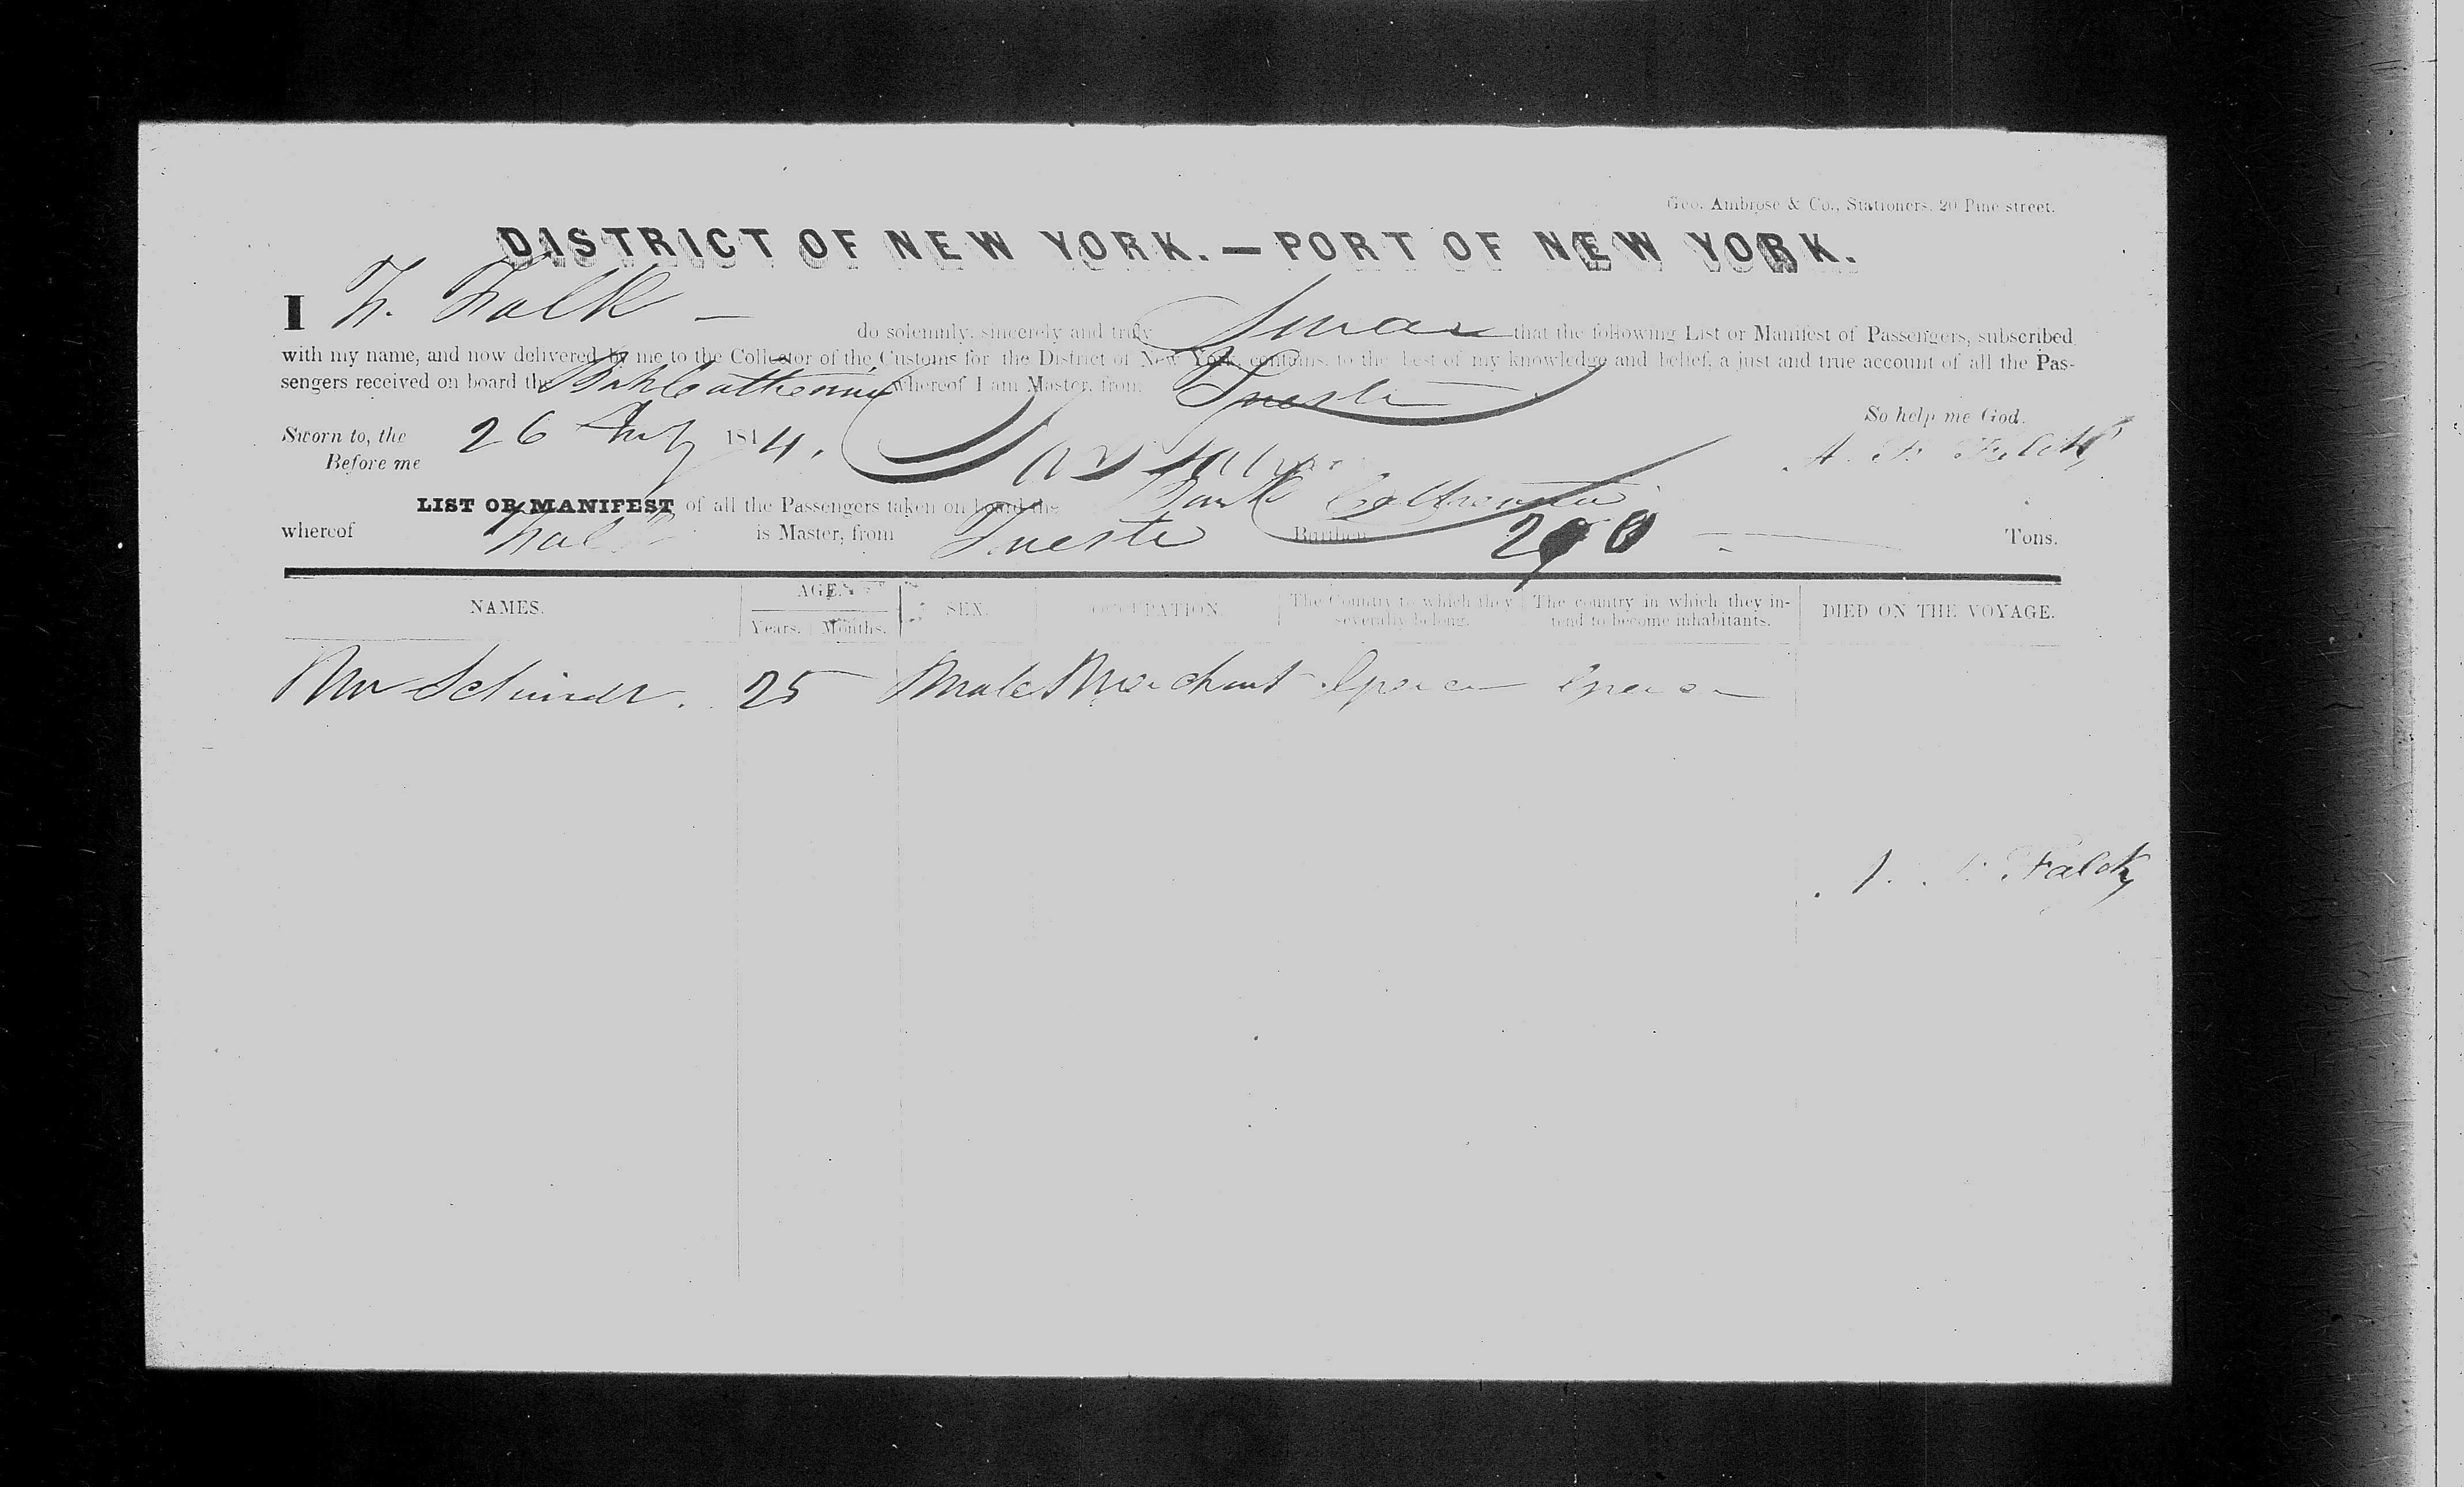 Geo. Ambrose & Co., Stationers, 20 Pine street.
DISTRICT OF NEW YORK. — PORT OF NEW YORK.
I F. Falk — do solemnly, sincerely and truly Swear that the following List or Manifest of Passengers, subscribed
with my name, and now delivered by me to the Collector of the Customs for the District of New York, contains, to the best of my knowledge and belief, a just and true account of all the Pas-
sengers received on board the Bark Catherine whereof I am Master, from Trieste
So help me God.
Sworn to, the 26 July 1844.
Before me
Falck
LIST OR MANIFEST of all the Passengers taken on board the Bark Catherine
whereof Falk is Master, from Trieste Burthen 290 Tons.
NAMES. AGE. SEX. OCCUPATION The Country to which they severally belong. The country in which they in-tend to become inhabitants. DIED ON THE VOYAGE.
Years. Months.
Mr 25 Male Merchant
Falck